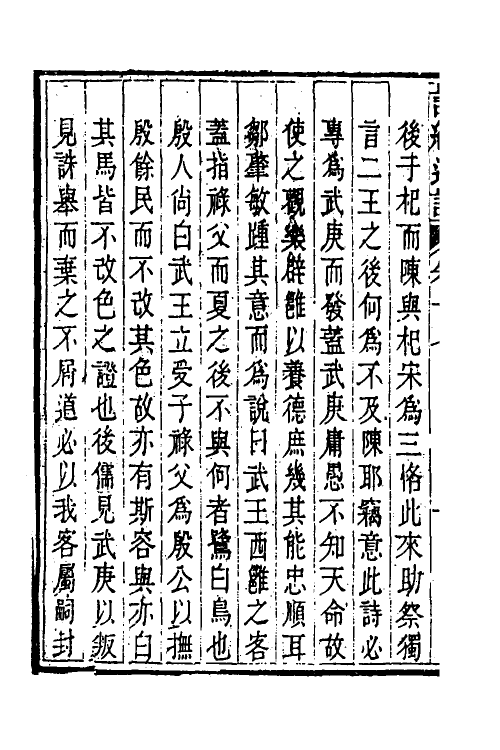 後于杞而陳與杞宋爲三恪此來助祭獨
言二王之後何爲不及陳耶竊意此詩必
專爲武庚而發蓋武庚庸愚不知天命故
使之觀樂辟雝以養德庶幾其能忠順耳
鄒肇敏踵其意而爲說曰武王西雝之客
蓋指祿父而夏之後不與何者鷺白鳥也
殷人尚白武王立受子祿父爲殷公以撫
殷餘民而不改其色故亦有斯容與亦白
其馬皆不改色之證也後儒見武庚以叛
見誅舉而棄之不屑道必以我客屬嗣封